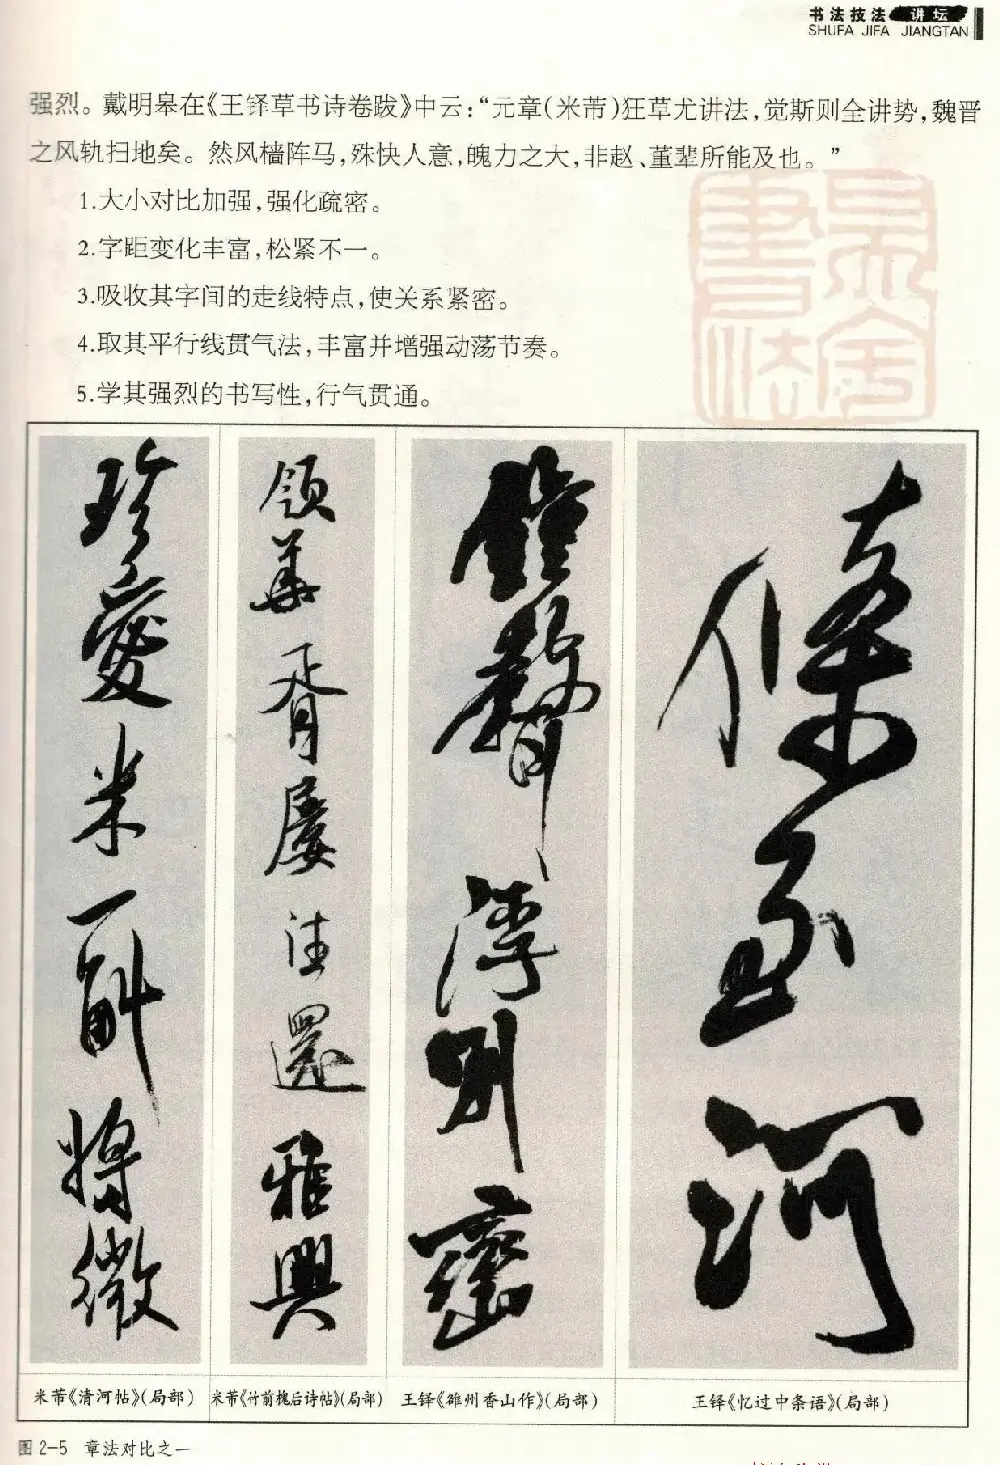 书法技法 讲坛
SHUFA JIFA JIANGTAN
强烈。戴明皋在《王铎草书诗卷跋》中云：“元章（米芾）狂草尤讲法，觉斯则全讲势，魏晋
之风轨扫地矣。然风樯阵马，殊快人意，魄力之大，非赵、董辈所能及也。”
1.大小对比加强，强化疏密。
2.字距变化丰富，松紧不一。
3.吸收其字间的走线特点，使关系紧密。
4.取其平行线贯气法，丰富并增强动荡节奏。
5.学其强烈的书写性，行气贯通。
珍爱米一斛将微
领华胥屡往还雅兴
钟声浮州峦
条至河
米芾《清河帖》（局部）
米芾《竹前槐后诗帖》（局部）
王铎《雒州香山作》（局部）
王铎《忆过中条语》（局部）
图2-5 章法对比之一